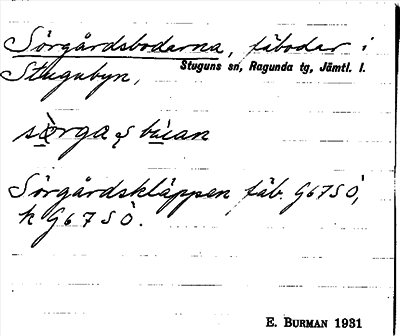 Sörgårdsbodarna, fäbodar i
Stugubyn, Stuguns sn, Ragunda tg, Jämtl. l.
sö̀rgaș bùan
Sörgårdskläppen fäb. G67SÖ,
k G67SÖ.
E. BURMAN 1931